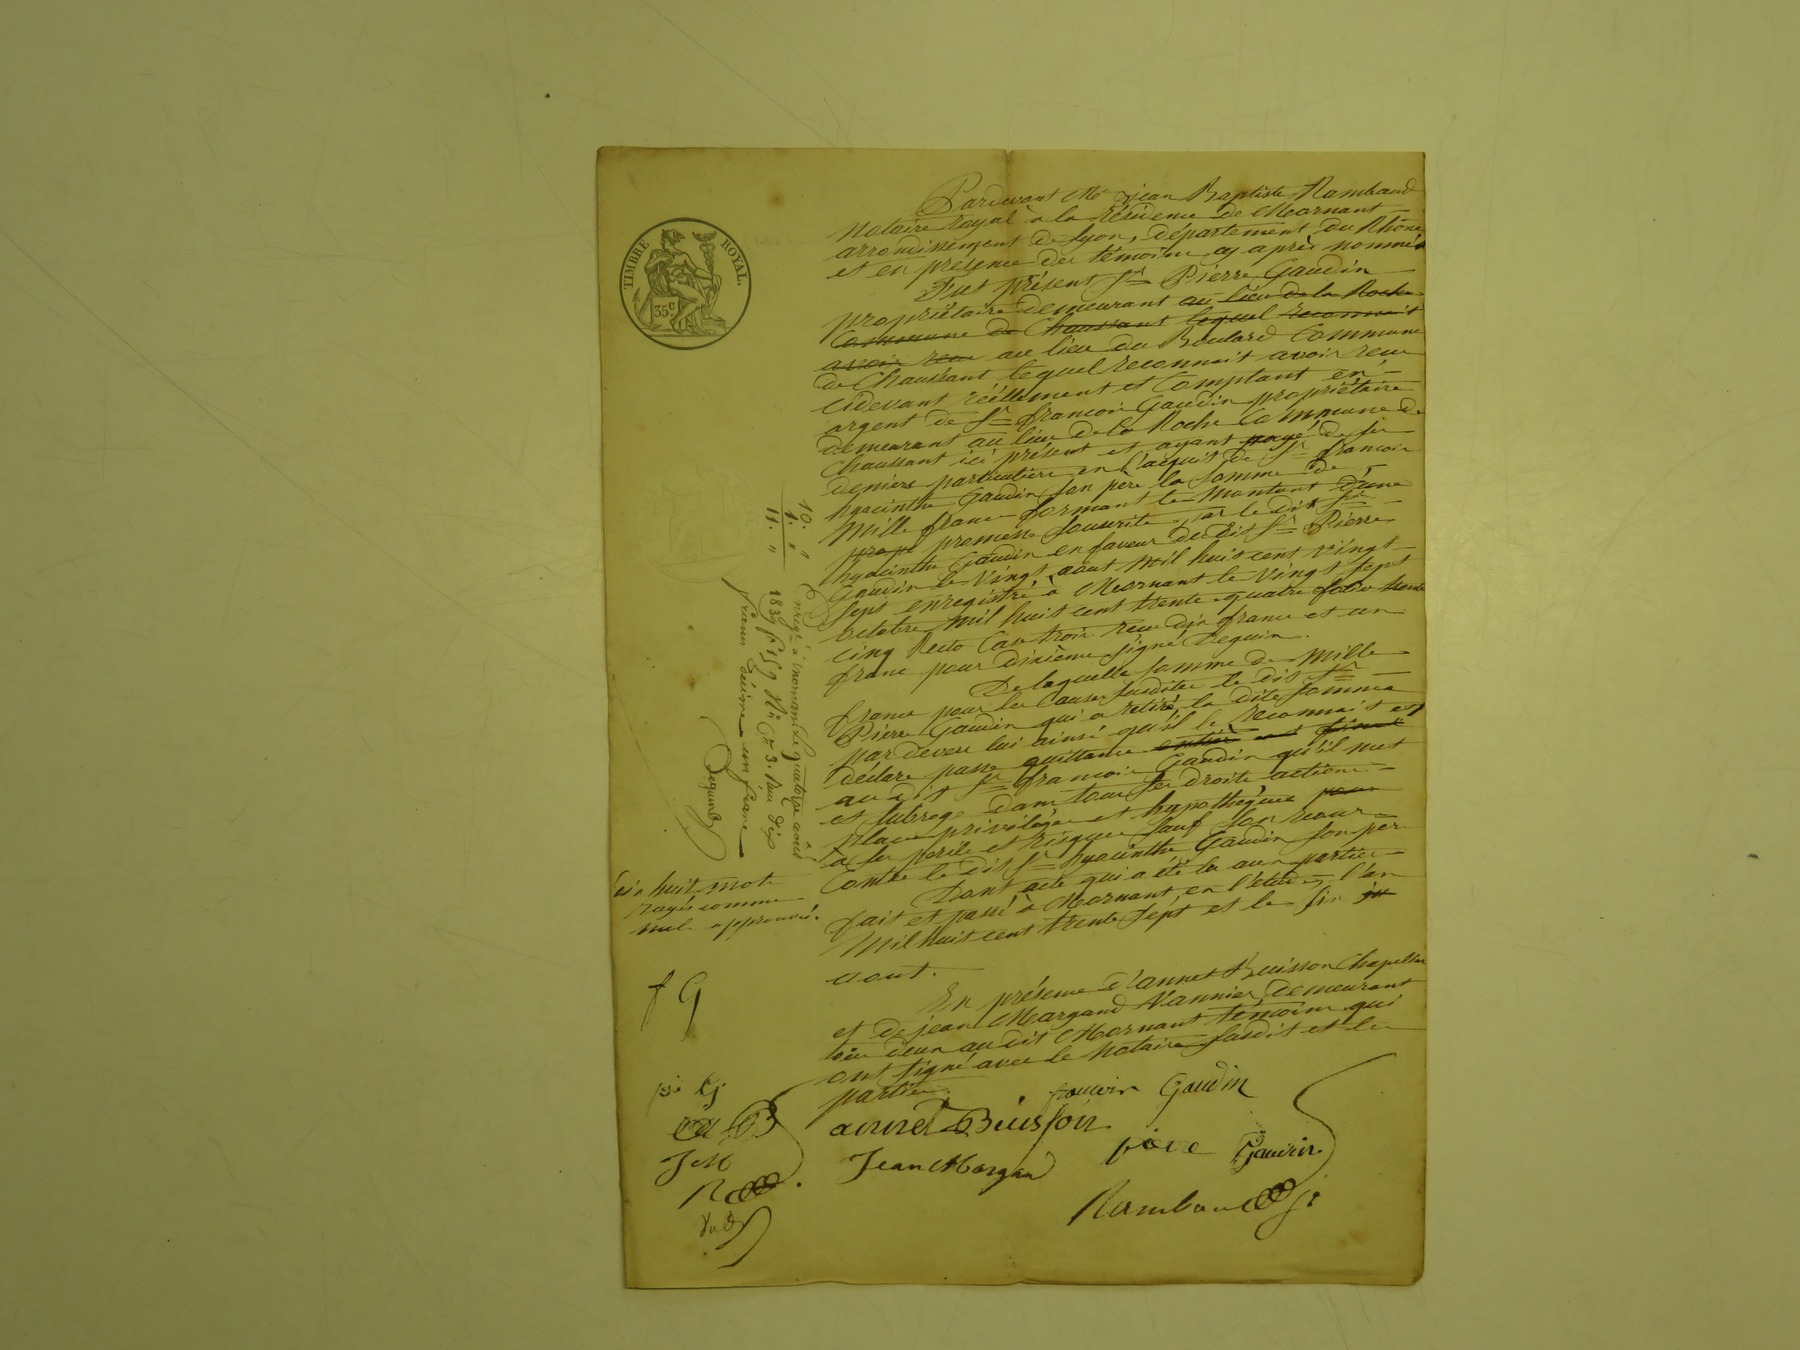 TIMBRE ROYAL.
35 c
Pardevant Me Jean Baptiste Rambaud
Notaire royal à la résidence de Mornant
arrondissement de Lyon, département du Rhône
et en présence des témoins cy après nommés
Fut présent Sr Pierre Gaudin
propriétaire demeurant au lieu de la Roche
Commune de Chaussant lequel reconnait
avoir recu au lieu du Boulard Commune
de Chaussant lequel reconnait avoir recu
cidevant réellement et Comptant en
argent de Sr francois Gaudin propriétaire
demeurant au lieu de la Roche Commune de
Chaussant ici présent et ayant payé de ses
deniers particuliers en l'acquit de Sr francois
hyacinthe Gaudin son père la somme de
Mille francs formant le montant d'une
promesse souscrite par le dit Sr
hyacinthe Gaudin en faveur du dit Sr Pierre
Gaudin le vingt aout mil huit cent vingt
sept enregistré à Mornant le vingt sept
octobre mil huit cent trente quatre folio trente
cinq Recto Case trois recu dix francs et un
franc pour dixième signé Deguin.
De laquelle somme de Mille
francs pour les Causes susdites le dit Sr
Pierre Gaudin qui a retiré la dite somme
par devers lui ainsi qu'il le reconnait et
déclare passe quittance
au dit Sr francois Gaudin qu'il met
et subroge dans tous ses droits actions
places privilèges et hypothèques pour
à ses perils et risques sauf son recour
Contre le dit Sr hyacinthe Gaudin son père
Dont acte qui a été lu aux parties
fait et passé à Mornant, en l'étude, l'an
Mil huit cent trente sept et le six
aout.
En présence d'annet Buisson Chapelier
et de jean Margand Vannier, demeurant
tous deux au dit Mornant témoins qui
ont signé avec le Notaire susdit et les
parties.
francois Gaudin
annet Buisson
piere Gaudin
Jean Margan
Rambaud
10. "
1. "
11. "
Enregé à mornant le quatorze août
1839 fo 159 Ro Ce 3. Recu dix
francs décime un franc
Deguin
huit mots
rayés comme
nuls approuvés.
f G
pi G
JcM
R